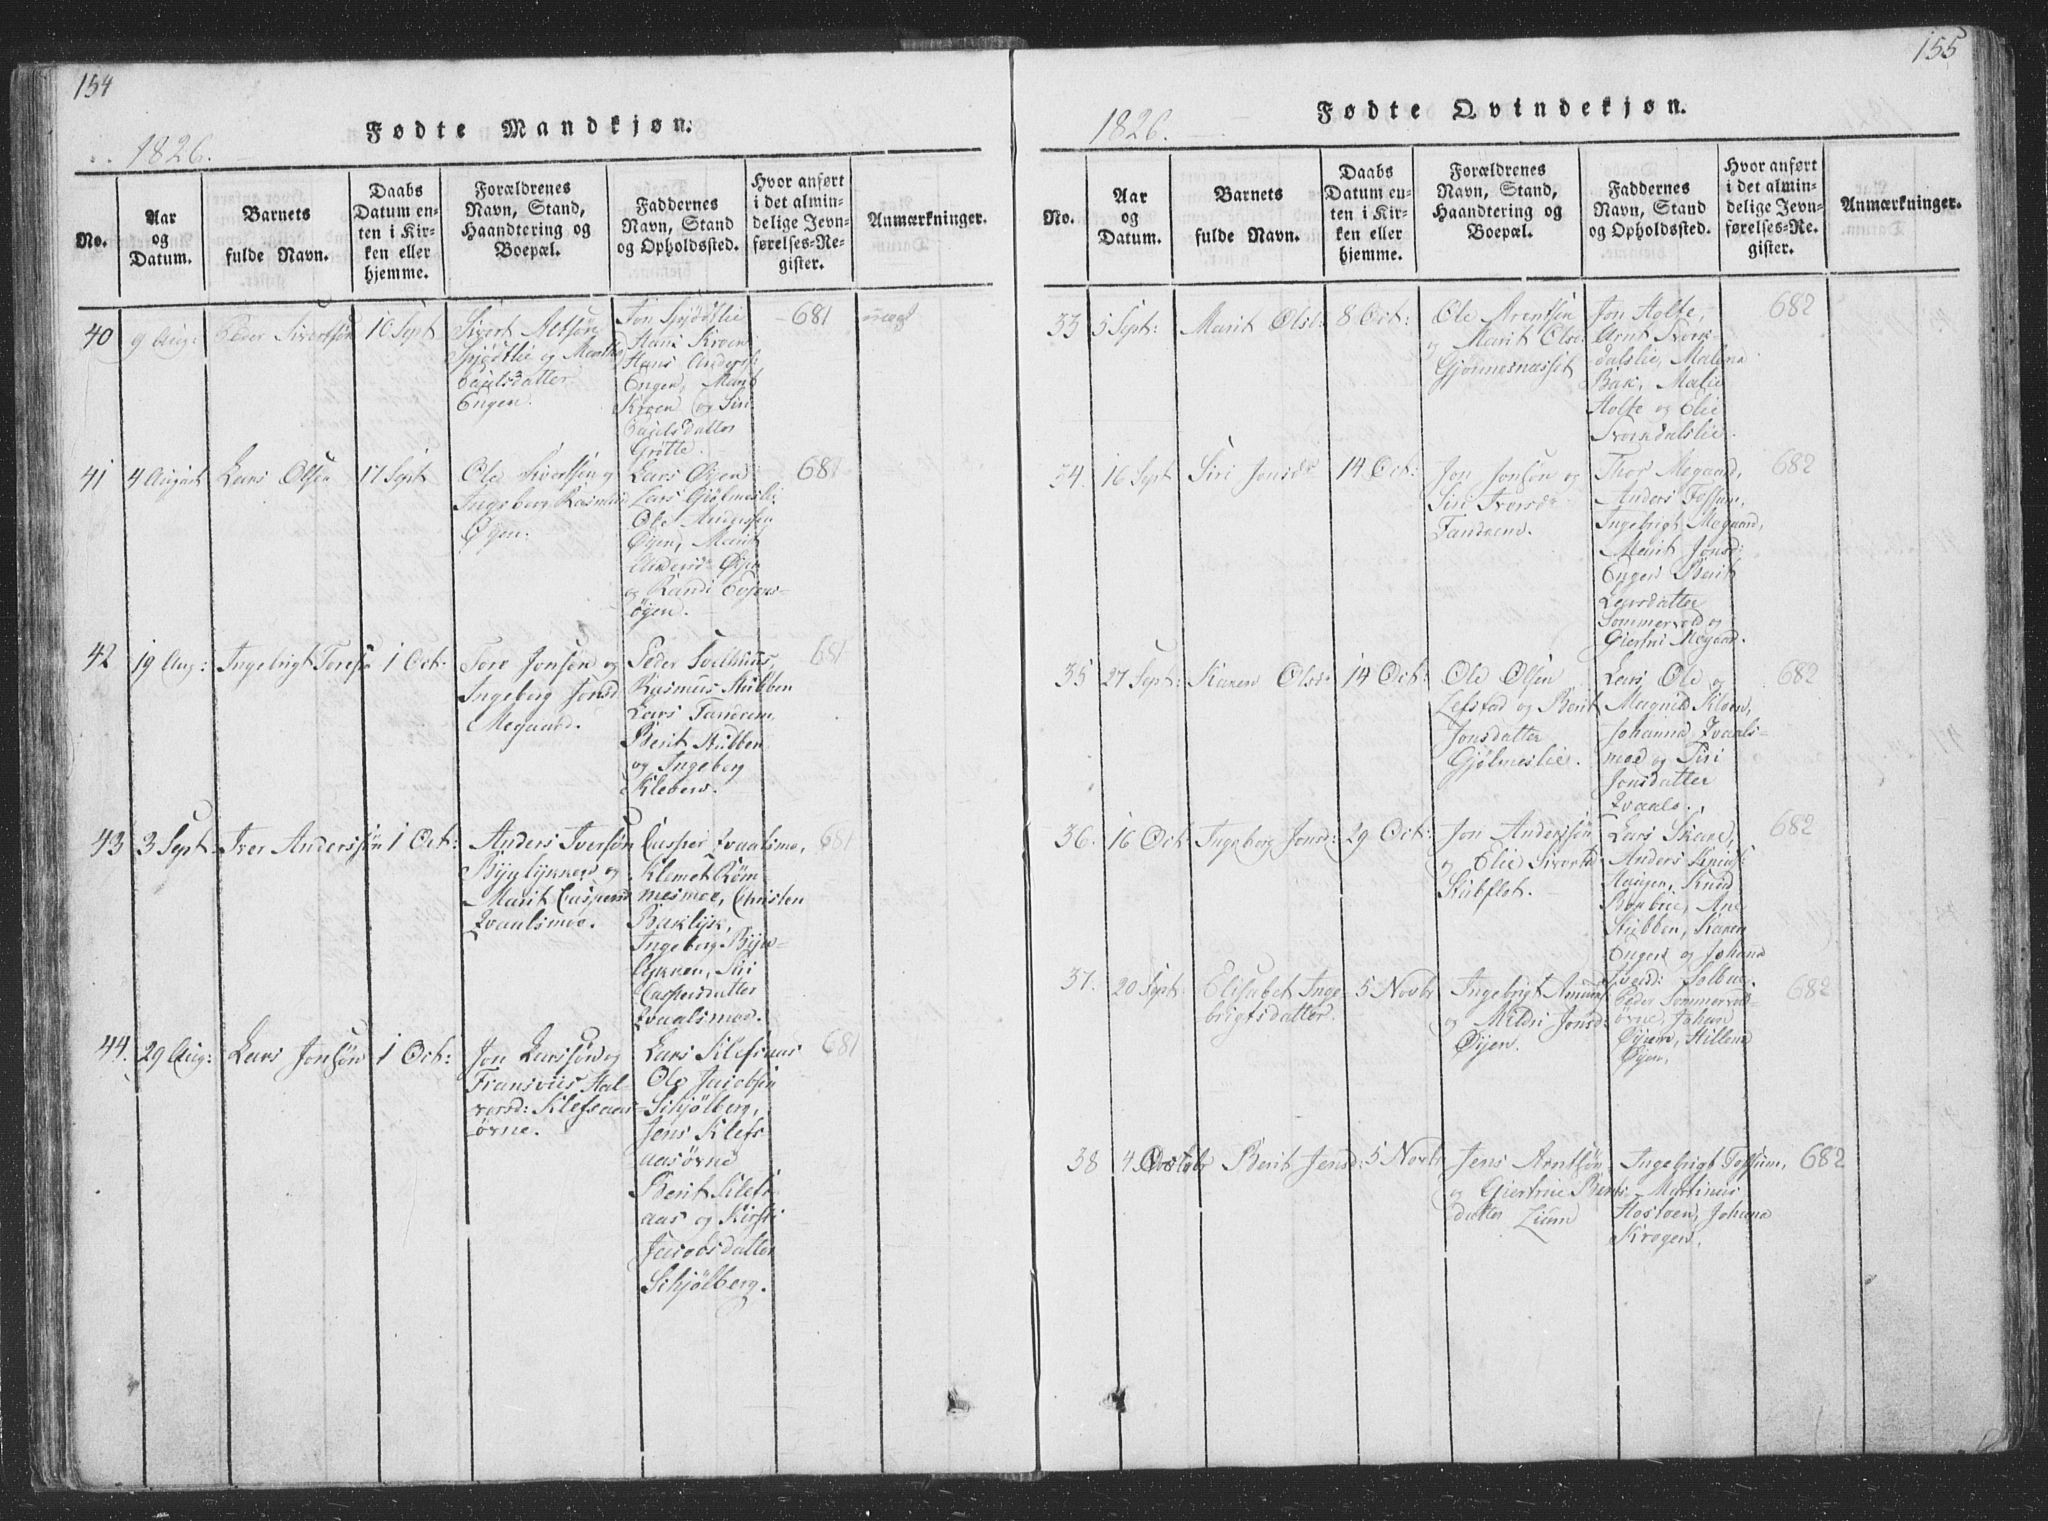 154
Fødte Mandkjøn.
1826.
No.
Aar
og
Datum.
Barnets
fulde Navn.
Daabs
Datum en-
ten i Kir-
ken eller
hjemme.
Forældrenes
Navn, Stand,
Haandtering og
Boepæl.
Faddernes
Navn, Stand
og Opholdssted.
Hvor anført
i det almin-
delige Jevn-
førelses-Re-
gister.
Anmærkninger.
40
9 Aug:
Peder Sivertsøn
10 Sept
Sivert
Spjødtlie og Marthe
Paulsdatter
Engen.
Jon Spjødtlie
Kroen
Hans Anders:
Engen, Marit
Kroen og Siri
Paulsdatter
Grötte.
681
uægt
41
4 August
Lars Olsen
17 Sept
Ole Sivertsøn og
Ingeborg Rasmusd
Øyen.
Lars Øyen
Lars Gjølmesli
Ole Andersen
Øyen, Marit
Andersd: Øyen
og Randi Evjens-
øyen.
681
42
19 Aug:
Ingebrigt Toresø
1 Oct:
Tore Jonsøn og
Ingeborg Jonsd
Megaard.
Peder Solhuus,
Rasmus Stubben
Lars Tandrem,
Berit Stubben
og Ingeborg
Kleven.
681
43
3 Sept
Iver Anderssøn
1 Oct:
Anders Iversøn
Byglykken og
Marit Caspersd
Qvaalsmoe.
Casper Qvaalsmo,
Klemet Röm-
mesmoe, Christen
Baklyk,
Ingeborg Byg-
lykken, Siri
Caspersdatter
Qvaalsmoe.
681
44.
29 Aug:
Lars Jonsøn
1 Oct:
Jon Larssøn og
Fransviis Hal-
vorsd: Klefsaas-
örne.
Lars Klefsaas
Ole Jacobsen
Schjølberg,
Jens Klefs
aasörne
Berit Klefs-
aas og Kirsti
Jacobsdatter
Schjølberg.
681
155
Fødte Qvindekjøn.
1826.
No.
Aar
og
Datum.
Barnets
fulde Navn.
Daabs
Datum en-
ten i Kir-
ken eller
hjemme.
Forældrenes
Navn, Stand,
Haandtering og
Boepæl.
Faddernes
Navn, Stand
og Opholdssted.
Hvor anført
i det almin-
delige Jevn-
førelses-Re-
gister.
Anmærkninger.
33
5 Sept:
Marit Olsd:
8 Oct:
Ole Arentsøn
og Marit Olsd:
Gjönnesnæsset
Jon Holte,
Arnt Svork-
dalslie, Malena
Bak, Malie
Holte og Elie
Svorkdalslie.
682
34.
16 Sept
Siri Jonsdr
14 Oct:
Jon Jonsøn og
Siri Iversdr
Tandrem.
Thor Megaard,
Anders Fossum,
Ingebrigt Megaard,
Marit Jonsd:
Engen Berit
Larsdatter
Sommervold og
Giertru Megaard.
682
35
27 Sept:
Karen Olsd:
14 Oct:
Ole Olsen
Lefstad og Berit
Jonsdatter
Gjølmeslie.
Lars Ole og
Magnild Kloven,
Johanna Qvaals-
moe og Siri
Jonsdatter
Qvaale.
682
36.
16 Oct:
Ingeborg Jonsd:
29 Oct:
Jon Anderssøn
og Elie Sivertsd
Stubflot.
Lars Skare,
Anders
Haugen, Knud
Borbue, Ane
Stubben, Karen
Engen og Johana
Solbue.
682
37.
20 Sept:
Elisabet Inge-
brigtsdatter.
5 Novbr
Ingebrigt
og Mildri Jonsd:
Øyen.
Peder Sommervold-
örne, Johan
Øyen, Hellena
Øyen.
682
38
4 Octobr
Berit Jensd:
5 Novbr
Jens Arntsøn
og Giertrue Bents-
datter Lium
Ingebrigt Fossum,
Martinus
Hostoen, Johana
Krogen.
682